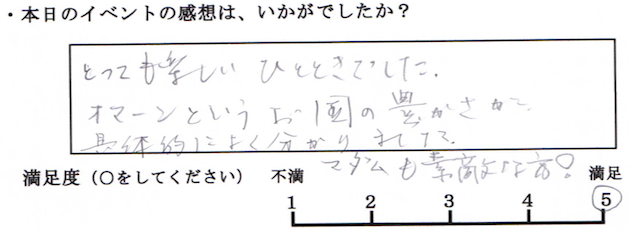 ・本日のイベントの感想は、いかがでしたか？
とっても楽しいひとときでした.
オマーンというお国の豊かさがで、
具体的によく分かりました.
マダムも素敵な方!
満足度（○をしてください） 不満 満足
1 2 3 4 5